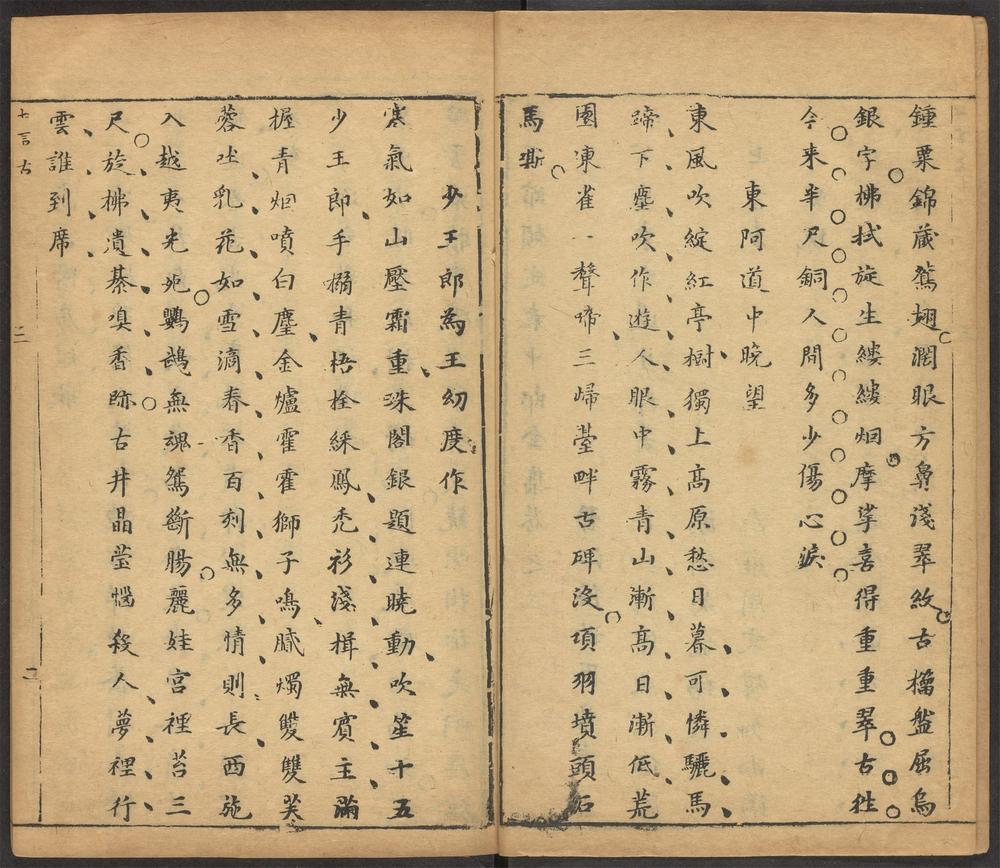 鍾粟錦蔵鴛翅濶眼方鼻淺翠紋古橊盤屈烏
銀字拂拭旋生縷縷烟摩挲喜得重重翠古徃
今来半尺銅人間多少傷心淚
東阿道中晚望
東風吹綻紅亭樹獨上髙原愁日暮可憐驪馬
蹄下塵吹作遊人眼中霧青山漸髙日漸低荒
園凍雀一聲啼三歸臺畔古碑没項羽墳頭石
馬嘶
少王郎為王幼度作
寒氣如山壓霜重珠閣銀題連曉動吹笙十五
少王郎手搦青梧拴綵鳳禿衫淺揖無賓主滿
握青烟噴白麈金爐霍霍獅子鳴膩燭雙雙芙
蓉吐乳花如雪滴春香百刻無多情則長西施
入越夷光死鸚鵡無魂鴛斷腸麗娃宮裡苔三
尺旋拂潰綦嗅香跡古井晶瑩惱殺人夢裡行
雲誰到席
七言古
二
二